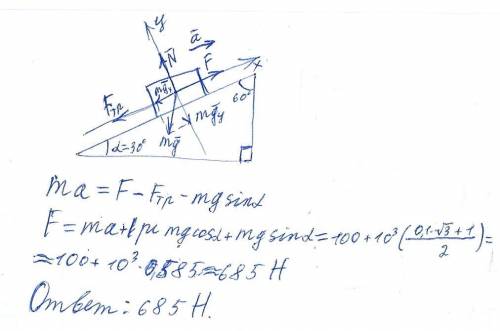 y
N̄ ā
F̄ x
mḡₓ
Fтр 60°
mḡy
α=30° mḡ
ma = F - Fтр - mg sinα
F = ma + μ mg cosα + mg sinα = 100 + 10³ (0,1·√3 + 1 / 2) =
≈ 100 + 10³ · 0,585 ≈ 685 Н
Ответ: 685 Н.